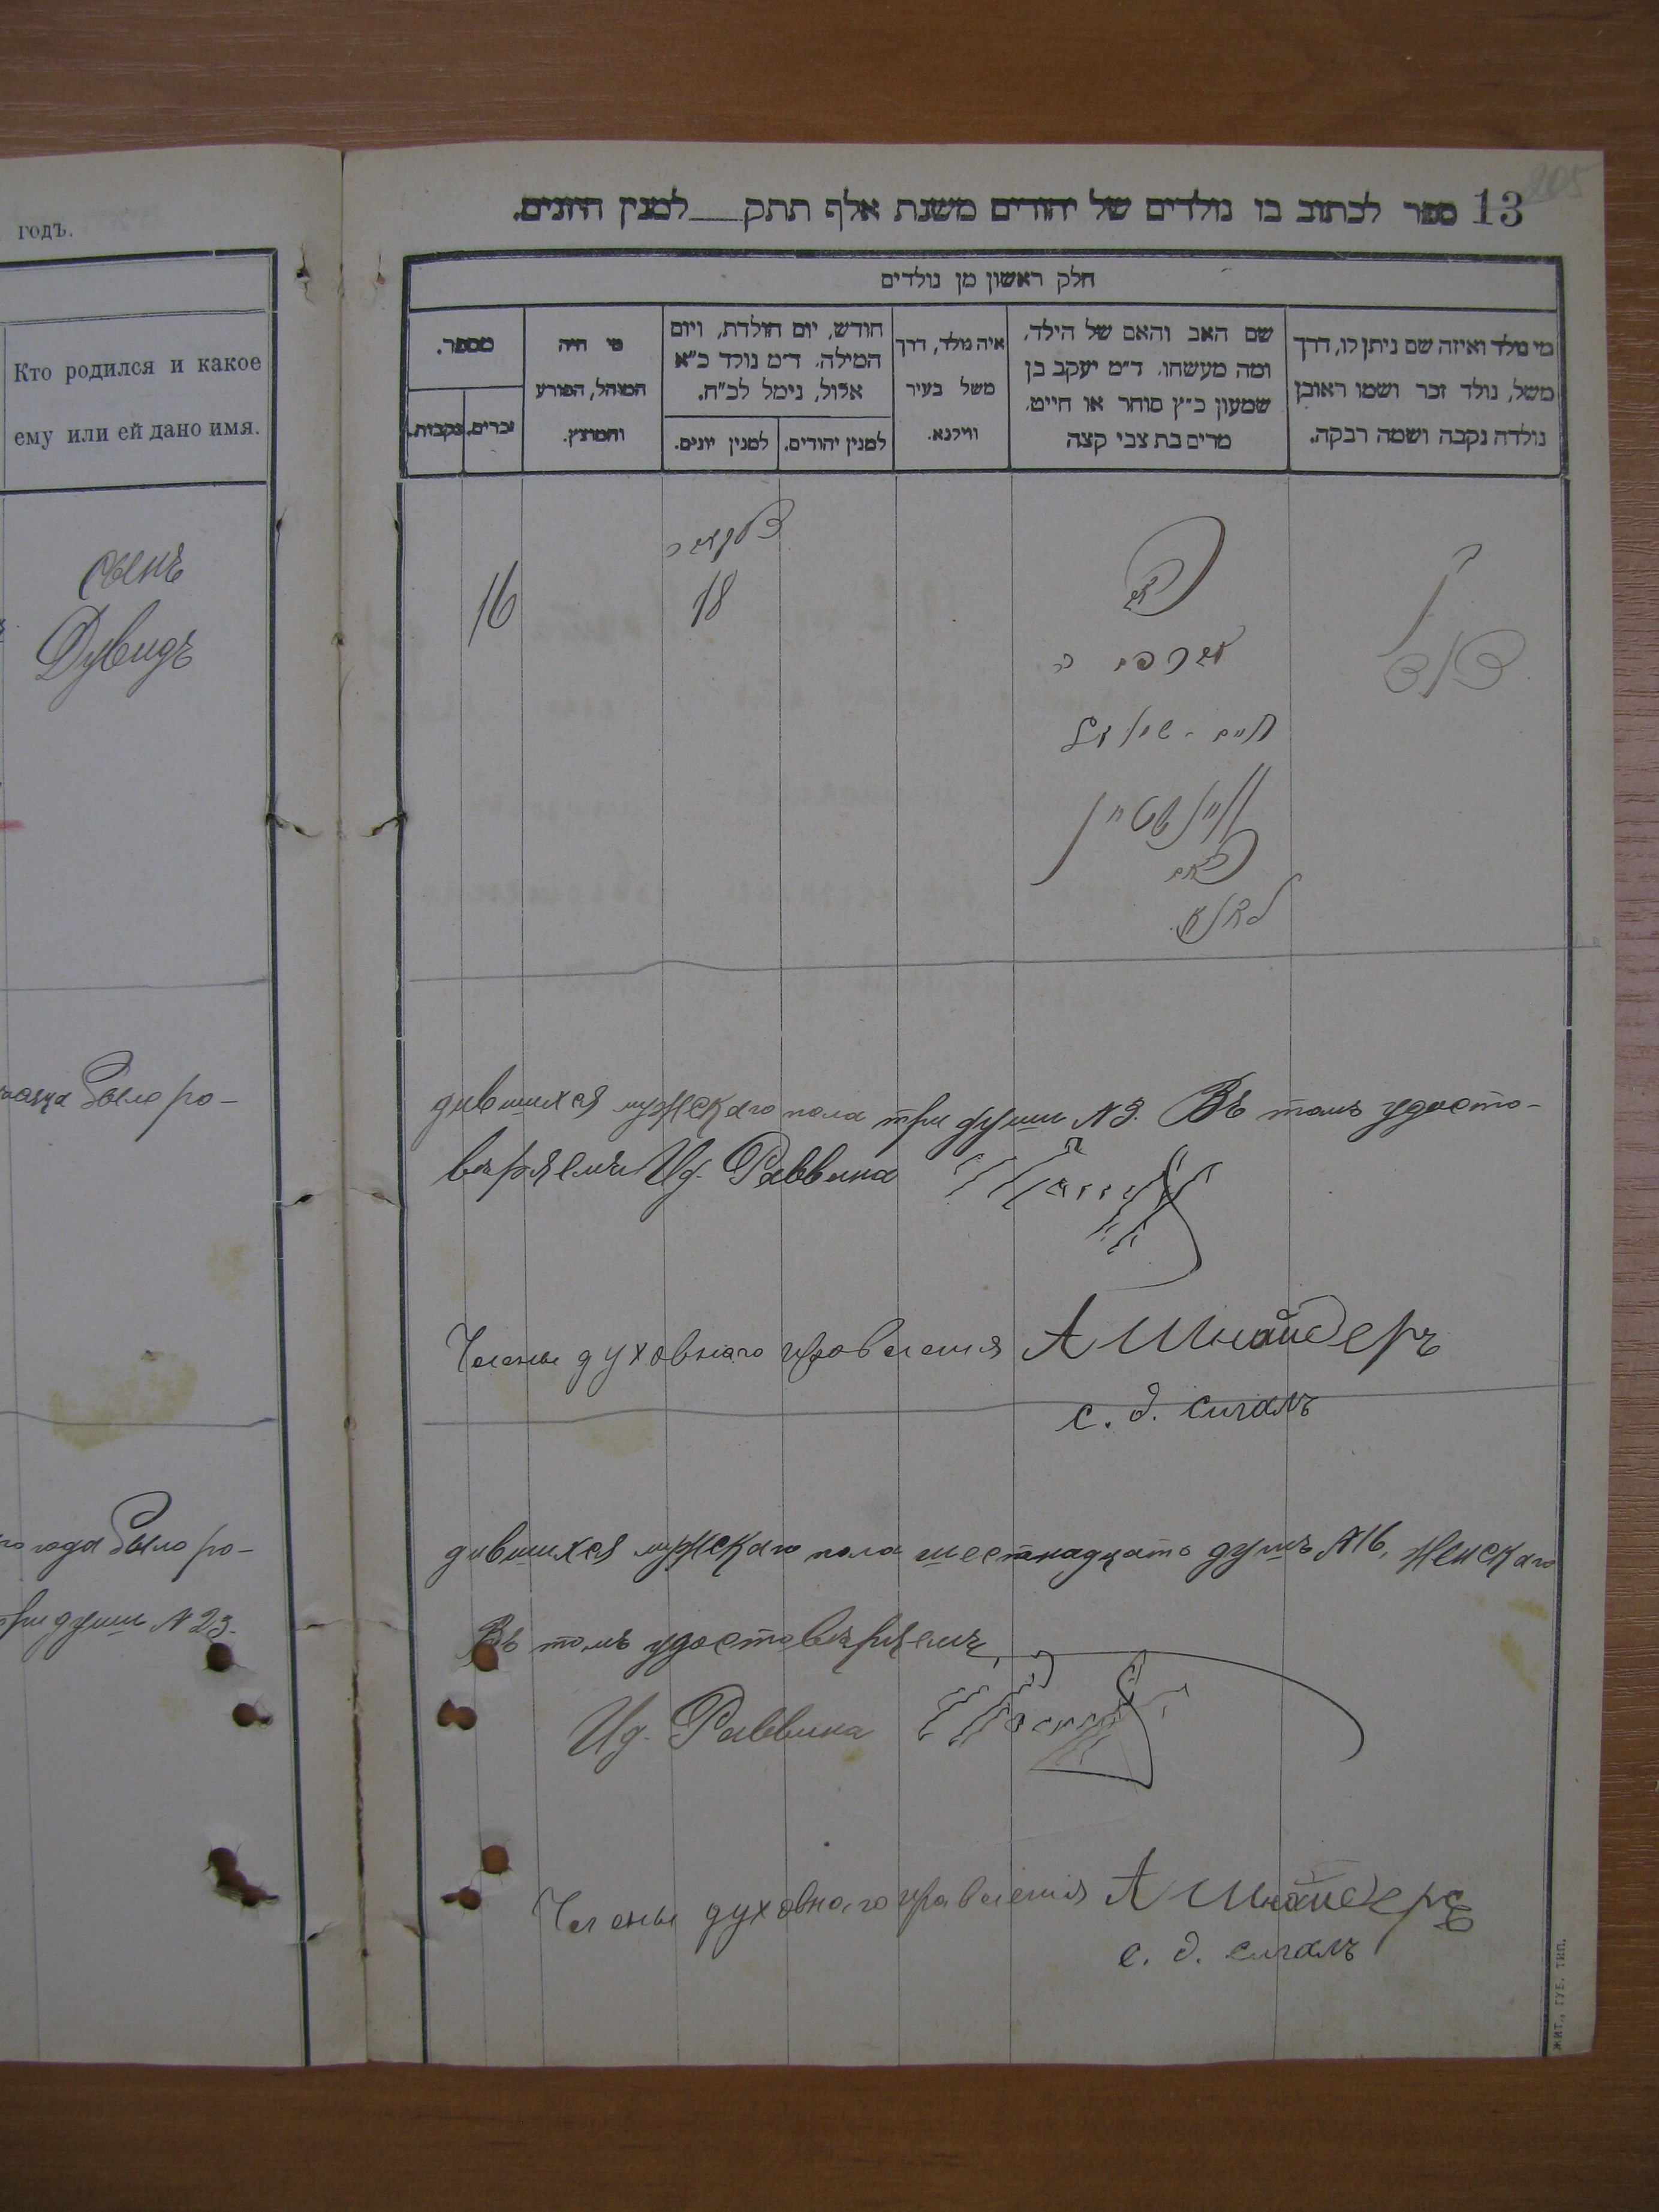 годъ.
Кто родился и какое
ему или ей дано имя.
сынъ
Дувидъ
было ро-
года было ро-
три души №23.
205
13 ספר לכתוב בו נולדים של יהודים משנת אלף תתק___למנין היונים.
חלק ראשון מן נולדים
מי נולד ואיזה שם ניתן לו, דרך
משל, נולד זכר ושמו ראובן
נולדה נקבה ושמה רבקה.
שם האב והאם של הילד,
ומה מעשהו. ד״מ יעקב בן
שמעון כ״ץ סוחר או חייט,
מרים בת צבי קצה
איה נולד, דרך
משל בעיר
ווילנא.
חודש, יום הולדת, ויום
המילה. ד״מ נולד כ״א
אלול, נימל לכ״ח.
למנין יהודים.
למנין יונים.
מי היה
המוהל, הפורע
והמוצץ.
מספר.
זכרים.
נקבות.
בן
דוד
חיים-
16
18
дившихся мужскаго пола три души №3. Въ томъ удосто-
вѣряемъ И д. Раввина
Члены духовнаго правления А Шнайдеръ
с. д. сигалъ
дившихся мужскаго пола шестнадцать душъ №16, женскаго
Въ томъ удостовѣряемъ
И д. Раввина
Члены духовнаго правления А Шнайдеръ
с. д. сигалъ
ЖИТ., ГУБ. ТИП.